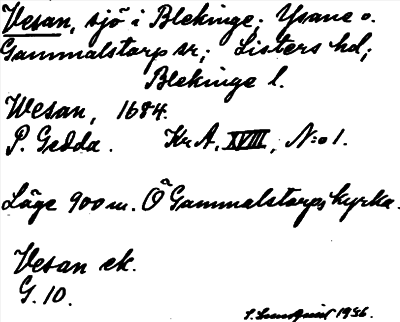 Vesan, sjö i Blekinge; Ysane o.
Gammalstorp sr; Listers hd;
Blekinge l.
Wesan, 1684.
P. Gedda. Kr A, XVIII, N:o 1.
Läge 900 m. Ö Gammalstorps kyrka.
Vesan ek.
G. 10.
S. Lundquist 1956.